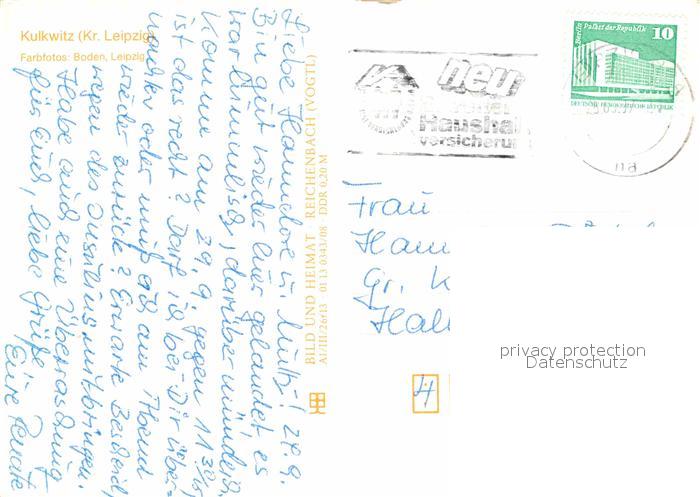 Kulkwitz (Kr. Leipzig)
Farbfotos: Boden, Leipzig
Liebe Hannelore u. Mutti! 24.9.
Bin gut wieder hier gelandet es
war himmlisch, darüber mündlich.
Komme am 29.9 gegen 11 30
ist das recht? Darf ich bei Dir über-
nachten oder muß ich am Abend
wieder zurück? Erwarte Bescheid,
wegen des Insulins mitbringen.
Habe auch eine Überraschung
für Euch, liebe Grüße
Eure Renate
BILD UND HEIMAT REICHENBACH (VOGTL)
A1/III/26/13 01 13 0343/08 DDR 0,20 M
neu
Haushalt
versicherun
Berlin Palast der Republik
10
DEUTSCHE DEMOKRATISCHE REPUBLIK
na
Frau
Hann
Gr. K
Hall
privacy protection
Datenschutz
H